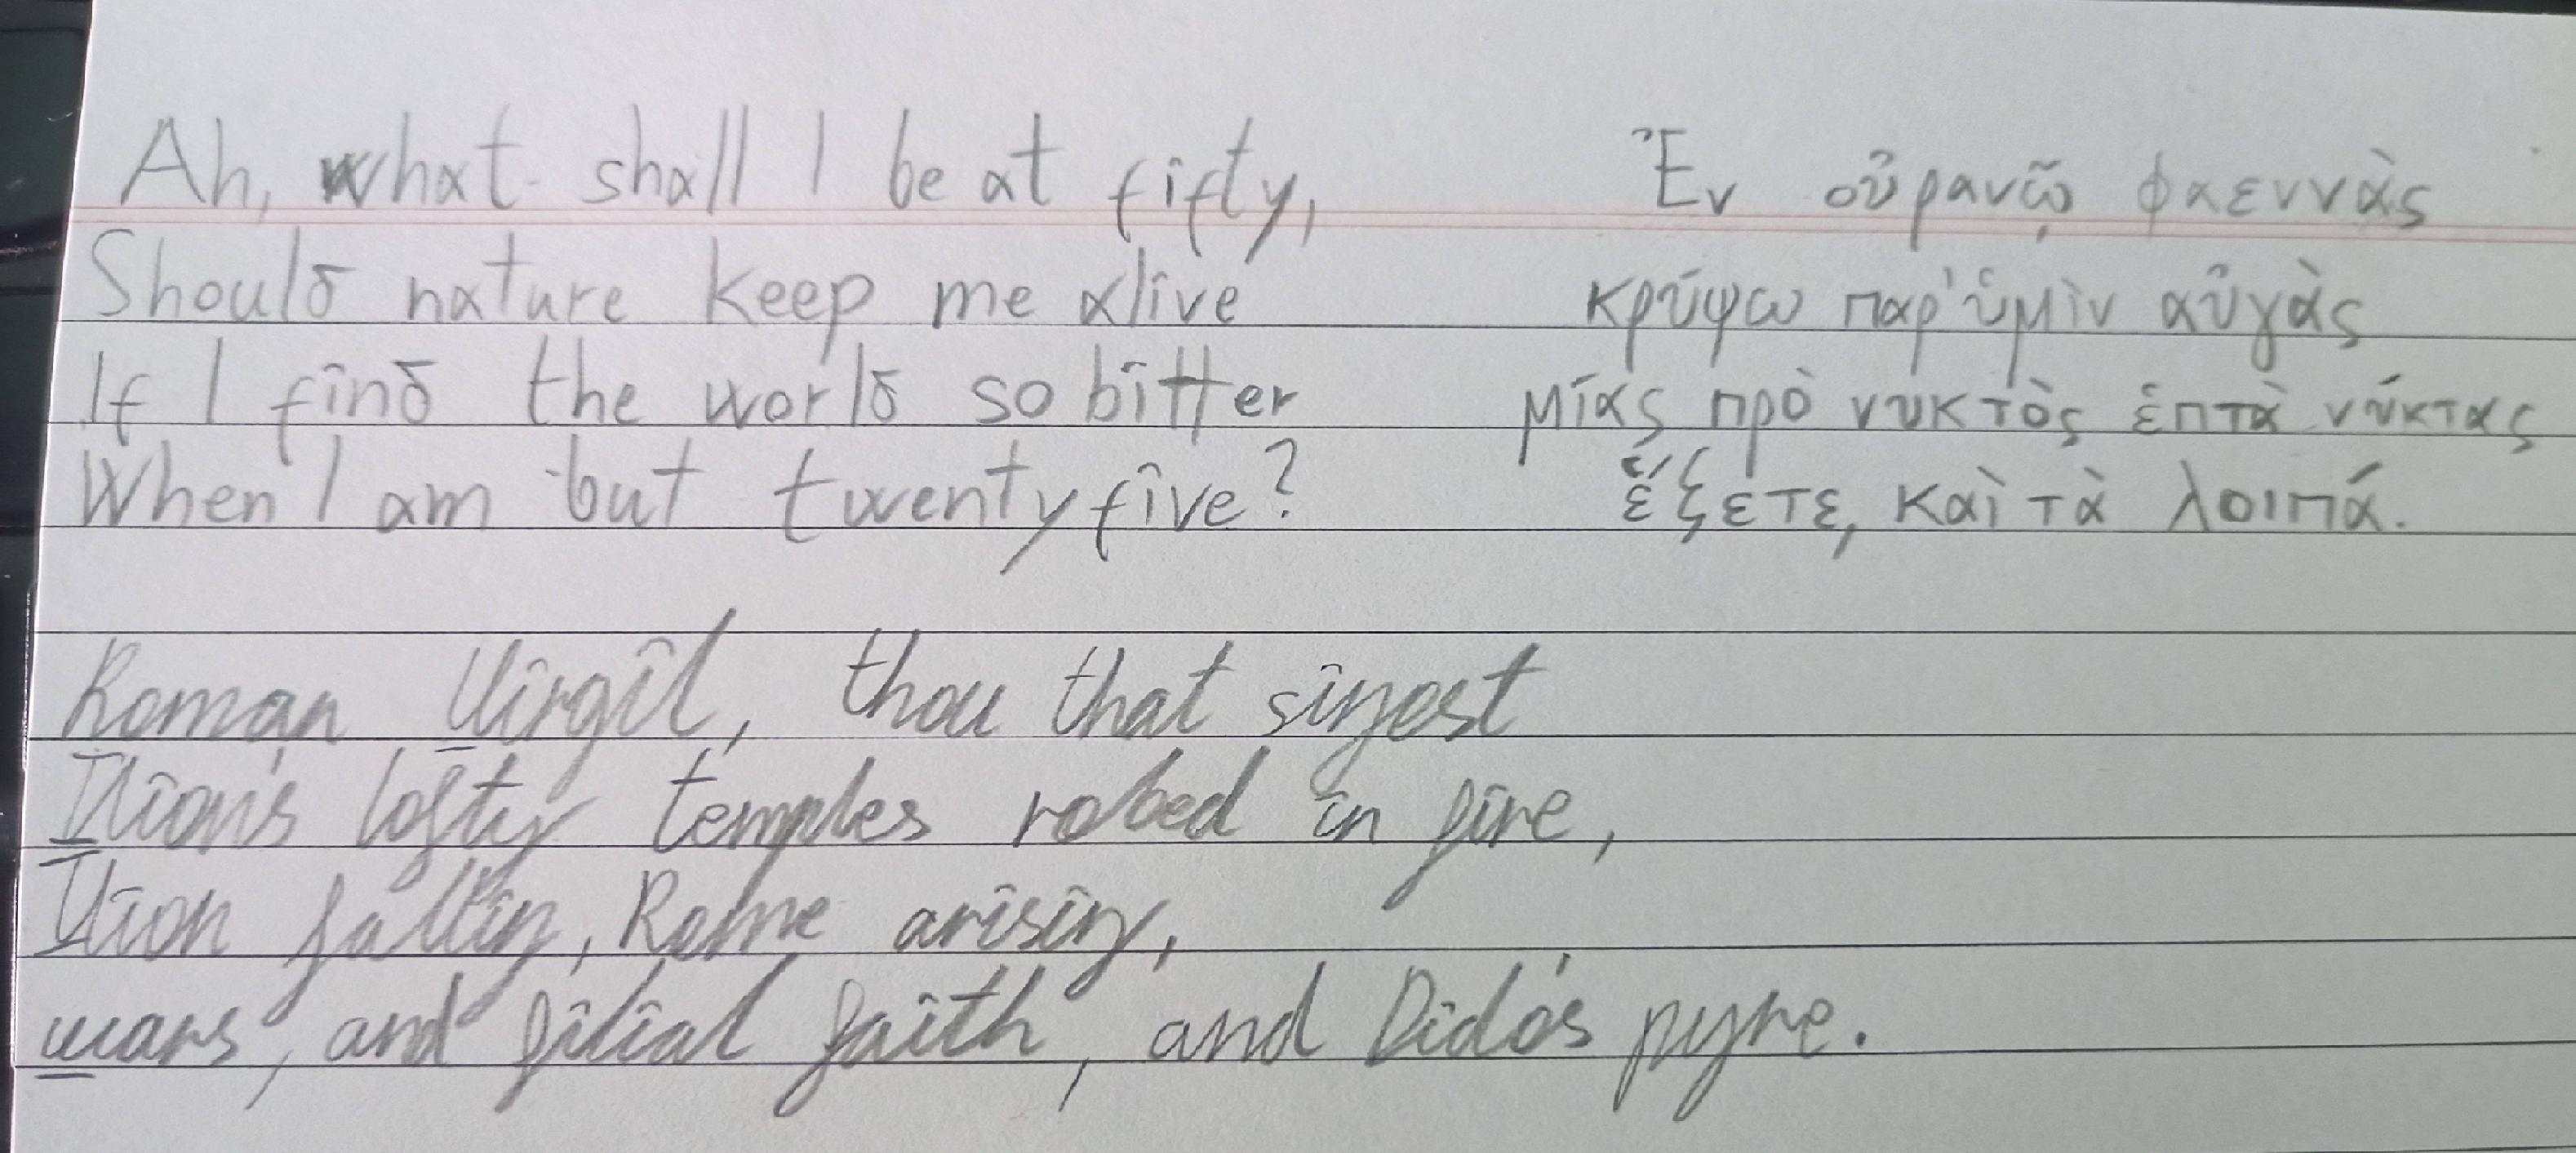 Ah, what shall I be at fifty,
Should nature keep me alive
If I find the world so bitter
When I am but twenty five?
Ἐν οὐρανῷ φαεννὰς
κρύψω παρ' ὑμὶν αὐγὰς
μίας πρὸ νυκτὸς ἑπτὰ νύκτας
ἕξετε, καὶ τὰ λοιπά.
Roman Virgil, thou that singest
Ilion's lofty temples robed in fire,
Ilion falling, Rome arising,
wars, and filial faith, and Dido's pyre.